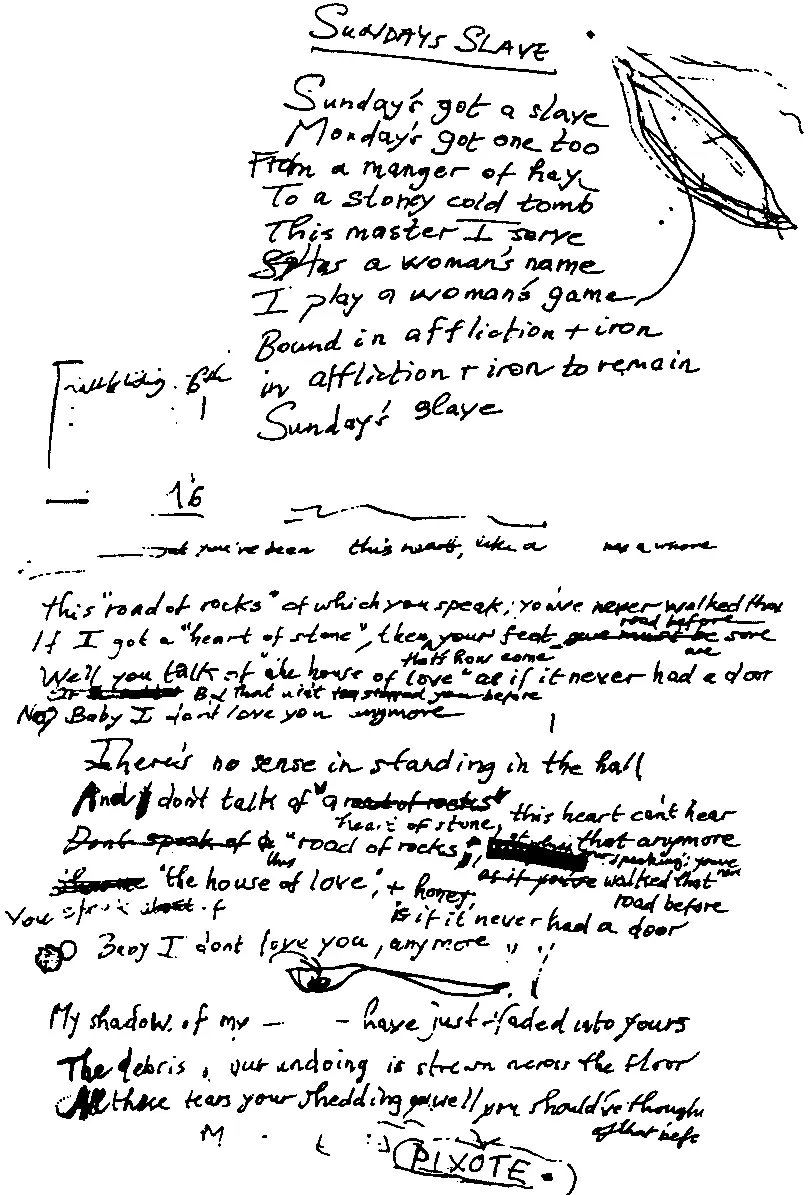 SUNDAYS SLAVE
Sunday's got a slave
Monday's got one too
From a manger of hay
To a stoney cold tomb
This master I serve
Has a woman's name
I play a woman's game
Bound in affliction + iron
in affliction + iron to remain
Sunday's slave
6th
16
you've been this heart, like a
this "road of rocks" of which you speak; you've never walked that
road before
If I got a "heart of stone", then your feet must be sore
that's how come are
Well you talk of "the house of love" as if it never had a door
But that ain't stopped you before
No) Baby I don't love you anymore
There's no sense in standing in the hall
And don't talk of "a road of rocks"
heart of stone, this heart can't hear
that anymore
Don't speak of a "road of rocks"
this speaking; you've
"the house of love", + honey, as if you've walked that
road before
You speak of is if it never had a door
Baby I don't love you, anymore
My shadow of my — — have just faded into yours
The debris, our undoing is strewn across the floor
All these tears your shedding well you should've though
of that befo
M
PIXOTE